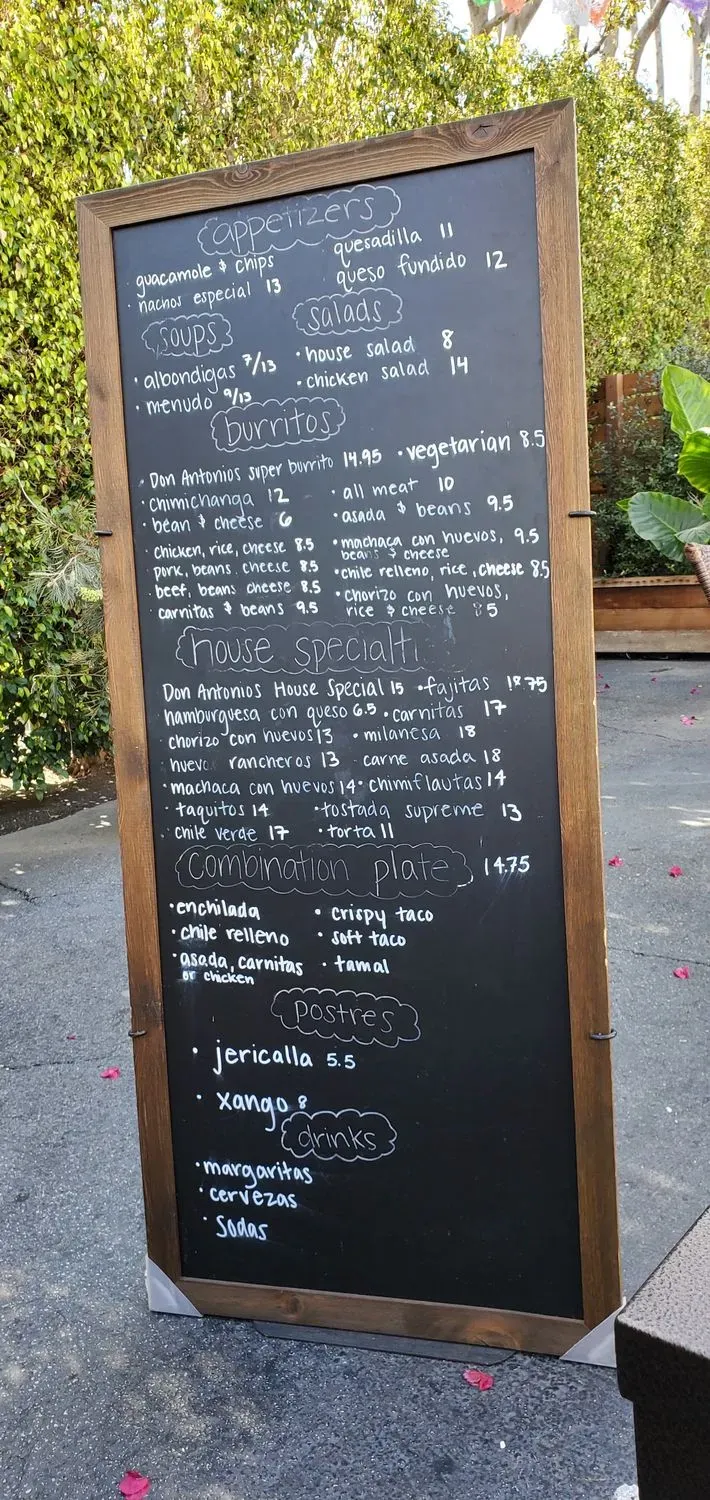 appetizers
guacamole & chips
nachos especial 13
quesadilla 11
queso fundido 12
soups
• albondigas 7/13
• menudo 9/13
salads
• house salad 8
• chicken salad 14
burritos
• Don Antonios super burrito 14.95
• chimichanga 12
• bean & cheese 6
chicken, rice, cheese 8.5
pork, beans cheese 8.5
beef, beans cheese 8.5
carnitas & beans 9.5
• vegetarian 8.5
• all meat 10
• asada & beans 9.5
• machaca con huevos, 9.5
beans & cheese
• chile relleno, rice, cheese 8.5
• chorizo con huevos,
rice & cheese 5
house specialti
Don Antonios House Special 15
hamburguesa con queso 6.5
chorizo con huevos 13
huevo rancheros 13
• machaca con huevos 14
• taquitos 14
chile verde 17
• fajitas 75
• carnitas 17
• milanesa 18
carne asada 18
• chimiflautas 14
• tostada supreme 13
• torta 11
combination plate 14.75
• enchilada
• chile relleno
• asada, carnitas
or chicken
• crispy taco
• soft taco
• tamal
postres
• jericalla 5.5
• xango 8
drinks
• margaritas
• cervezas
• sodas